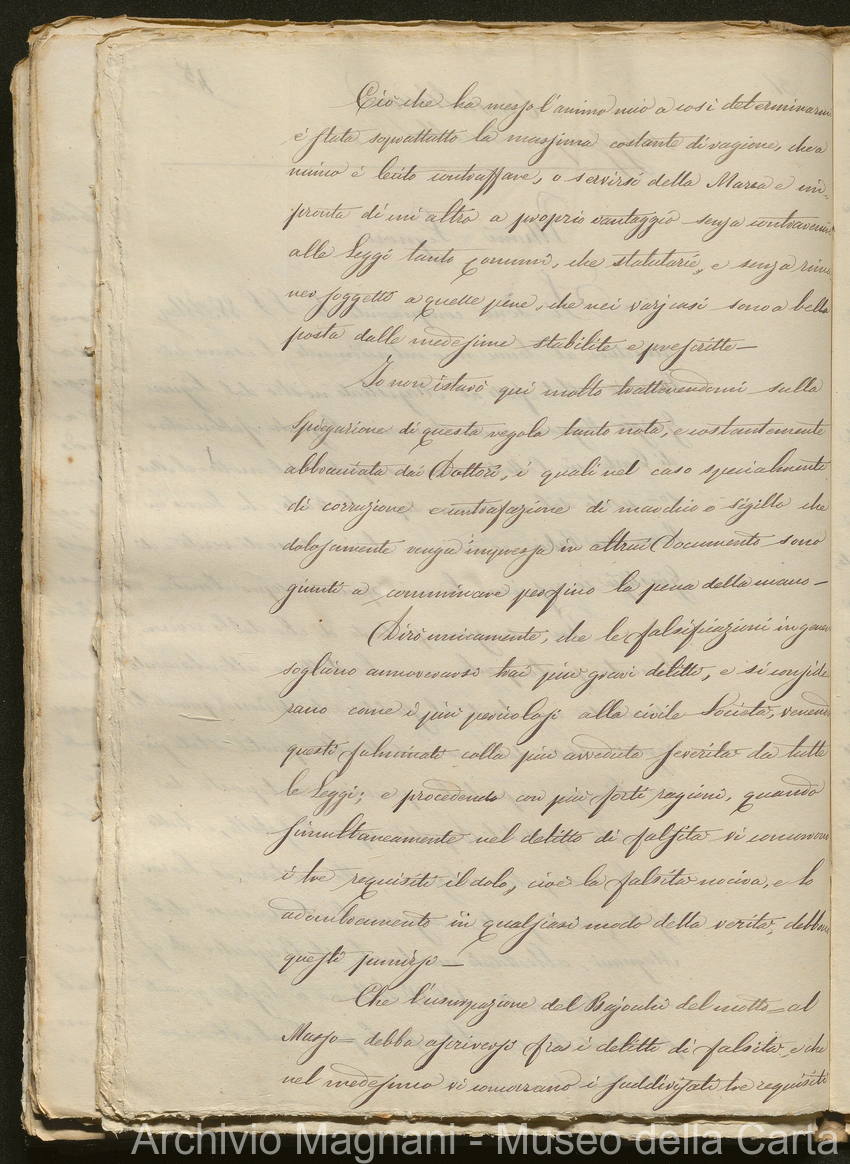 Ciò che ha messo l'animo mio a così determinarmi
è stata soprattutto la massima costante di ragione, che a
niuno è lecito contraffare, o servirsi della Marca e im-
pronta di un altro a proprio vantaggio senza contravenire
alle Leggi tanto comuni, che statutarie, e senza rima
ner soggetto a quelle pene, che nei varj casi sono a bella
posta dalle medesime stabilite e prescritte —
Io non istarò qui molto trattenendomi sulla
spiegazione di questa regola tanto nota, e costantemente
abbracciata dai Dottori, i quali nel caso specialmente
di corruzione e contrafazione di marchio o sigillo che
dolosamente venga impressa in altrui Documento sono
giunti a comminare perfino la pena della mano —
Dirò unicamente, che le falsificazioni in gener
sogliono annoverarsi trai più gravi delitti, e si conside
rano come i più pericolosi alla civile Società, venendo
questi fulminati colla più avveduta severità da tutte
le Leggi; e procedendo con più forti ragioni, quando
simultaneamente nel delitto di falsità vi concorrono
i tre requisiti il dolo, cioè la falsità nociva, e lo
adombramento in qualsiasi modo della verità, debbono
questi punirsi —
Che l'usurpazione del Bajocchi del motto = al
Masso = debba ascriversi fra i delitti di falsità, e che
nel medesimo vi concorrano i suddivisati tre requisiti
Archivio Magnani - Museo della Carta